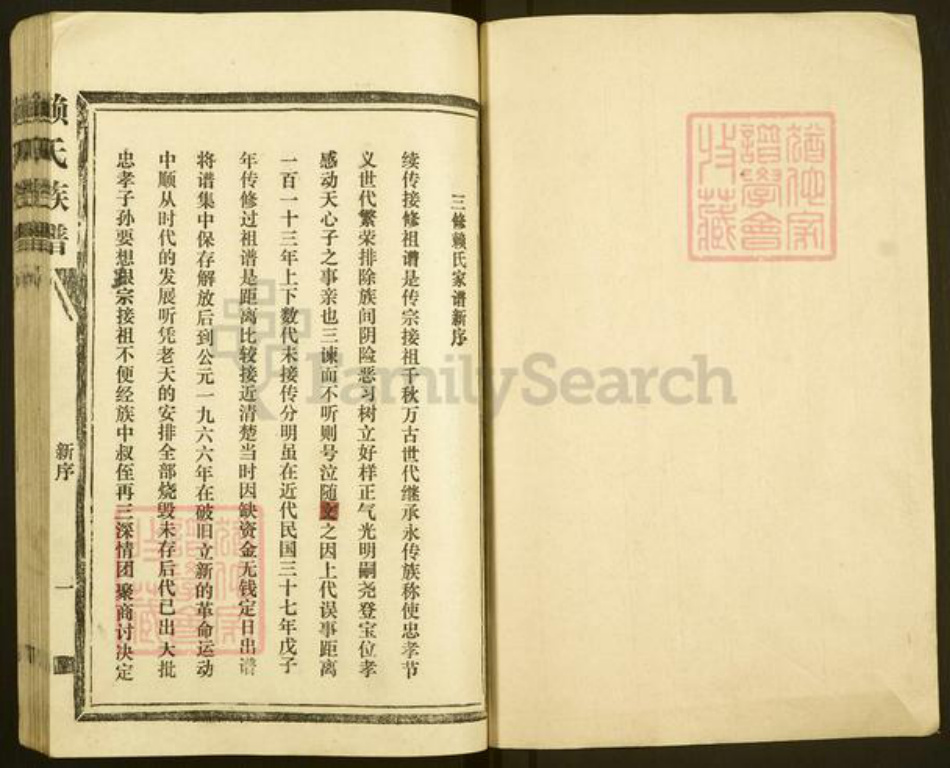 三修赖氏家谱新序
续传接修祖谱是传宗接祖千秋万古世代继承永传族称使忠孝节
义世代繁荣排除族间阴险恶习树立好样正气光明嗣尧登宝位孝
感动天心子之事亲也三谏而不听则号泣随之因上代误事距离
一百一十三年上下数代未接传分明虽在近代民国三十七年戊子
年传修过祖谱是距离比较接近清楚当时因缺资金无钱定日出谱
将谱集中保存解放后到公元一九六六年在破旧立新的革命运动
中顺从时代的发展听凭老天的安排全部烧毁未存后代已出大批
忠孝子孙要想根宗接祖不便经族中叔侄再三深情团聚商讨决定
赖氏族谱
新序
一
猶他家
譜學會
收藏
猶他家
譜學會
收藏
FamilySearch